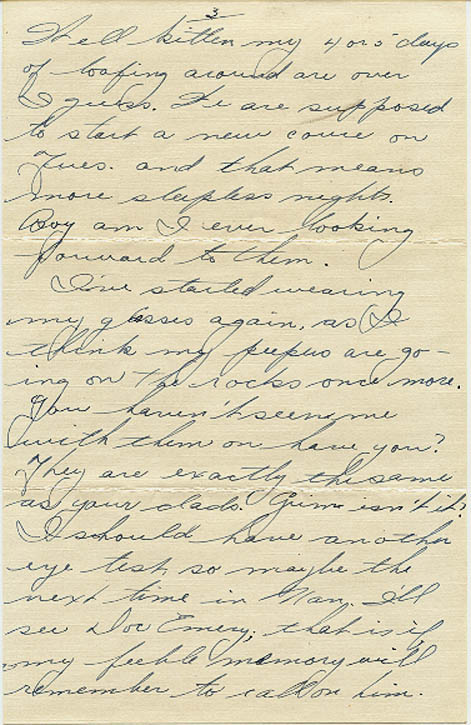 3
Well kitten my 4 or 5 days
of loafing around are over
I guess. We are supposed
to start a new course on
Tues. and that means
more sleepless nights.
Boy am I ever looking
forward to them.
I've started wearing
my glasses again, as I
think my peepers are go-
ing on the rocks once more.
You haven't seen me
with them on have you?
They are exactly the same
as your dads. Grim isn't it?
I should have another
eye test so maybe the
next time in Nan. I'll
see Doc Emery; that is if
my feeble memory will
remember to call on him.